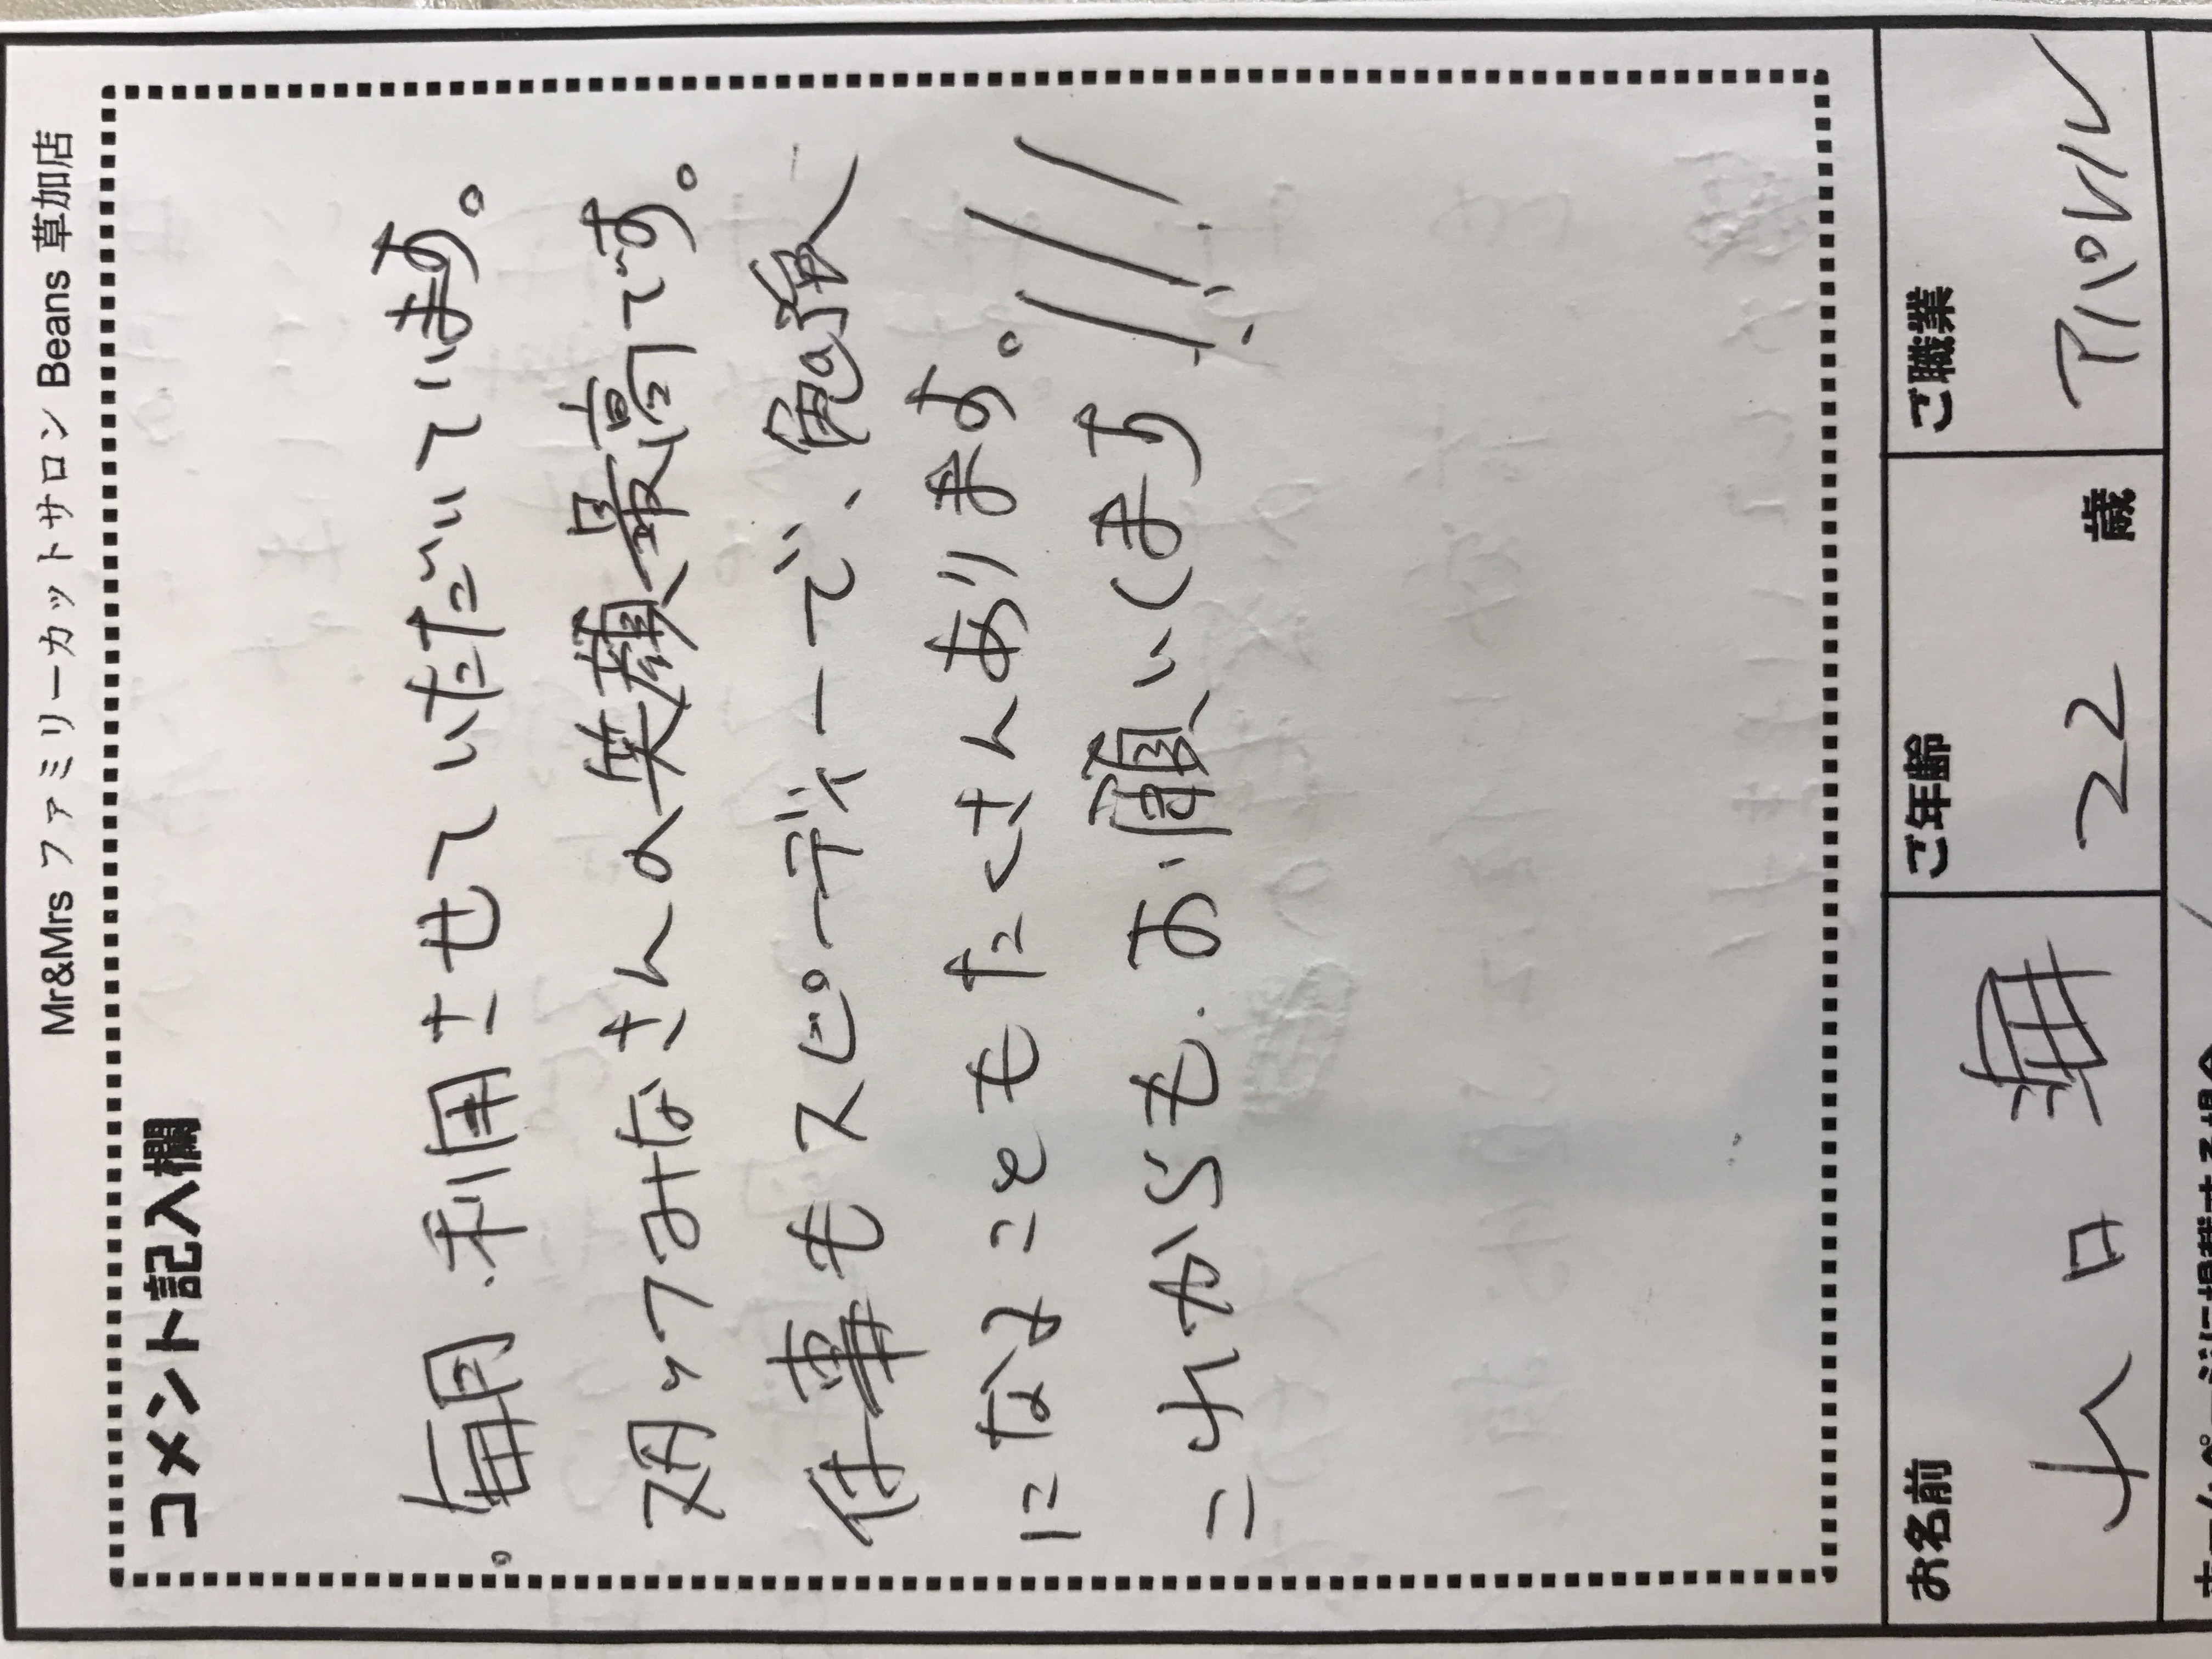 Mr&Mrs ファミリーカットサロン Beans 草加店
コメント記入欄
毎月、利用させていただいています。
スタッフみなさんの笑顔最高です。
仕事もスピーディーで、勉強
になることもたくさんあります。
これからも、お願いします!!!
お名前
ご年齢
ご職業
山口 海
22 歳
アパレル
ホームページに掲載する場合